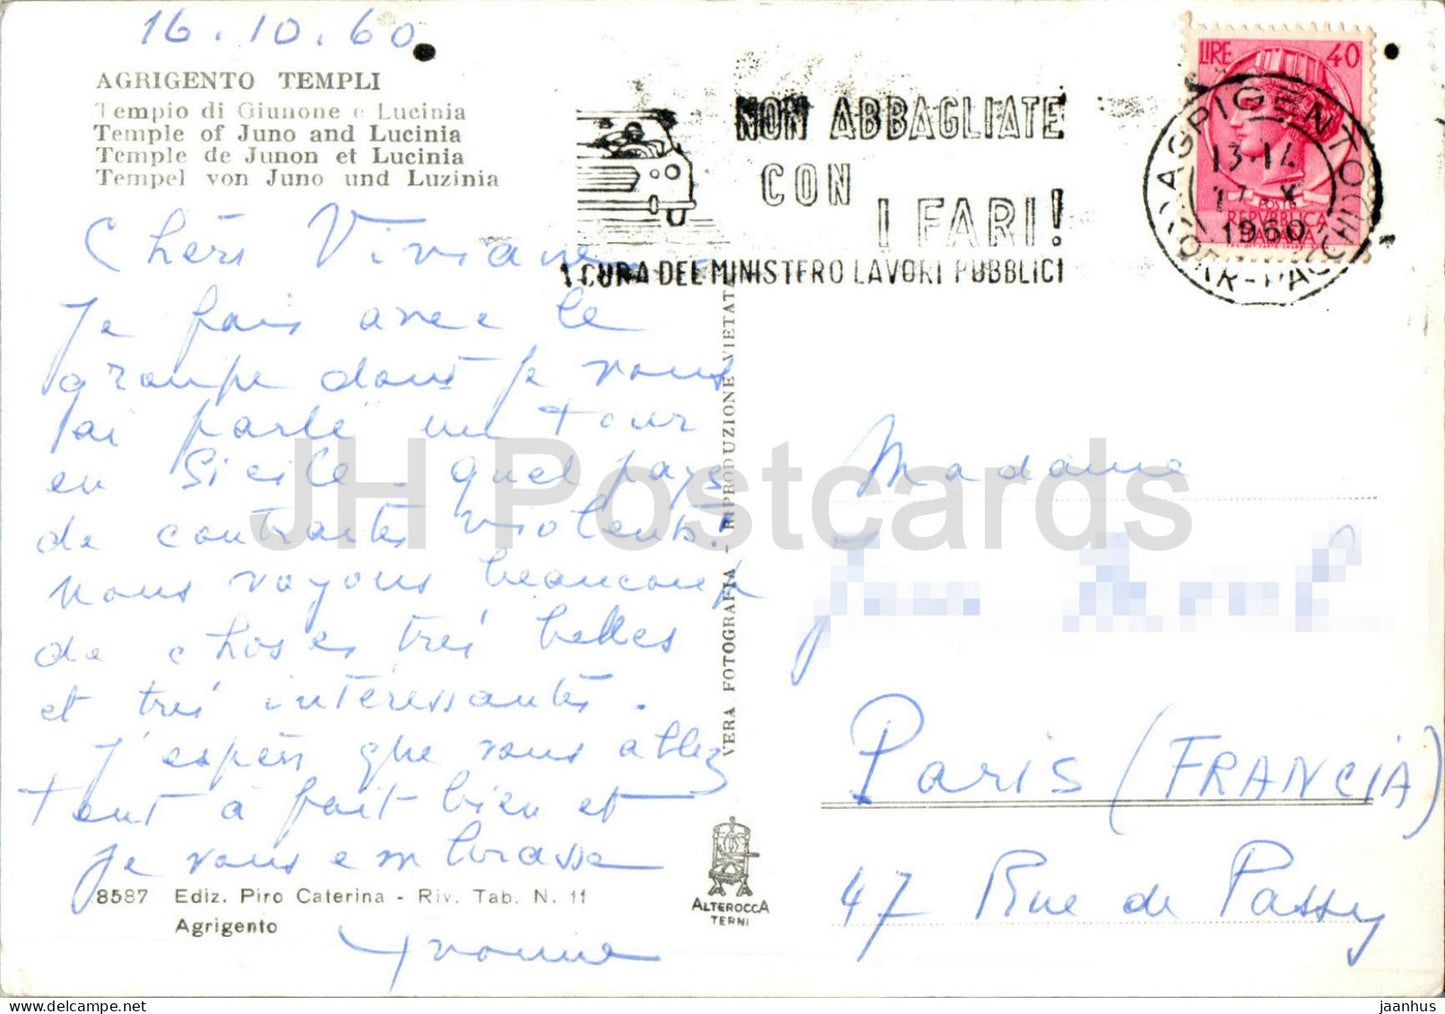 16.10.60
AGRIGENTO TEMPLI
Tempio di Giunone e Lucinia
Temple of Juno and Lucinia
Temple de Junon et Lucinia
Tempel von Juno und Luzinia
NON ABBAGLIATE
CON
I FARI!
A CURA DEL MINISTERO LAVORI PUBBLICI
LIRE 40
POSTE
REPVBBLICA
ITALIANA
AGRIGENTO
17 X
1960
Chère Viviane
Je fais avec le
groupe dont je vous
ai parlé un tour
en Sicile. quel pays
de contrastes violents!
Nous voyons beaucoup
de choses très belles
et très intéressantes.
J'espère que vous allez
tout à fait bien et
je vous embrasse
Yvonne
8587 Ediz. Piro Caterina - Riv. Tab. N. 11
Agrigento
VERA FOTOGRAFIA - RIPRODUZIONE VIETATA
ALTEROCCA
TERNI
Madame
Paris (FRANCIA)
47 Rue de Passy
JH Postcards
delcampe.net
jaanhus